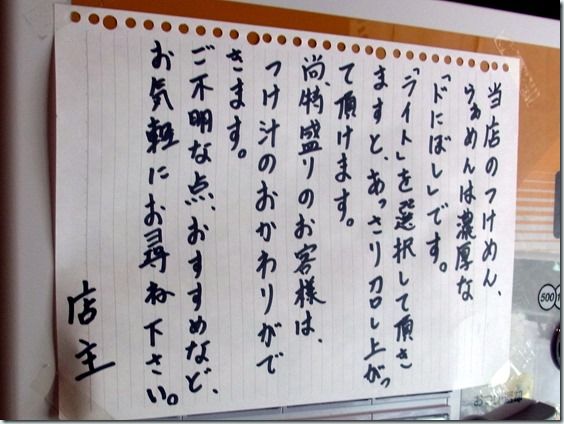 当店のつけめん、
らぁめんは濃厚な
「ドにぼし」です。
「ライト」を選択して頂き
ますと、あっさり召し上がっ
て頂けます。
尚、特盛りのお客様は、
つけ汁のおかわりがで
きます。
ご不明な点、おすすめなど、
お気軽にお尋ね下さい。
店主
500